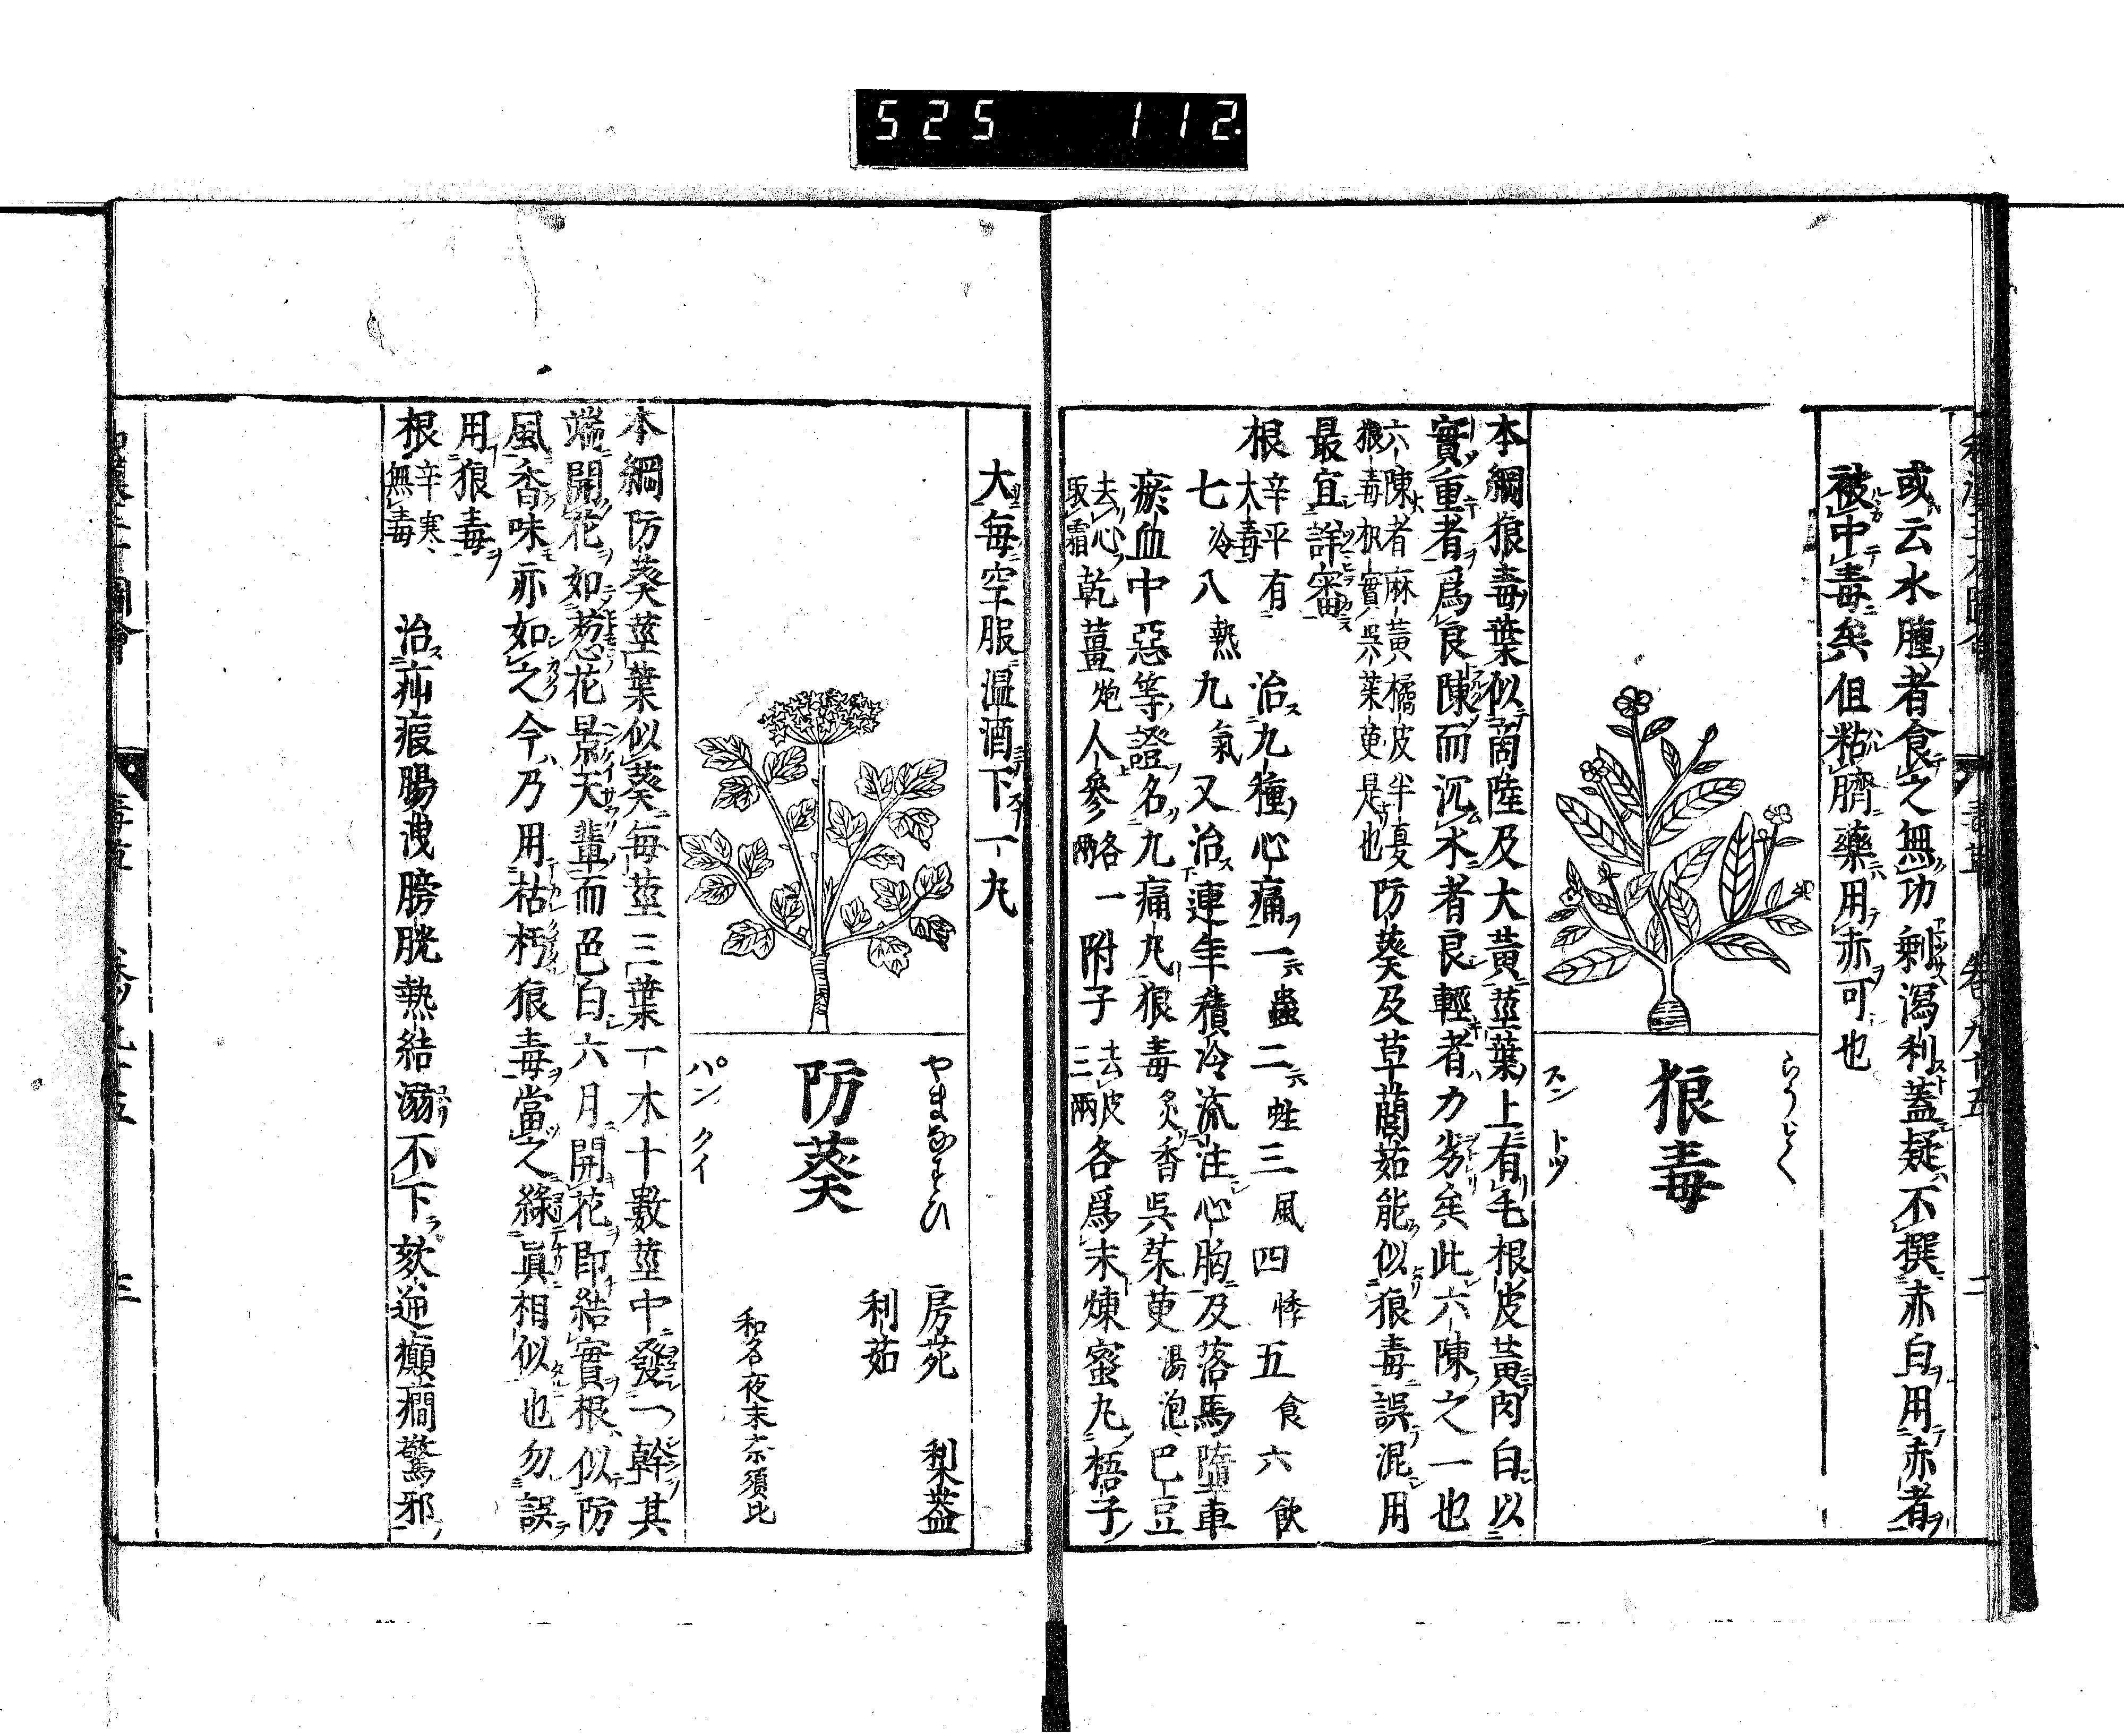 525 112.
或云水腫者食之無功剰瀉利蓋疑不撰赤白用赤者
被中毒矣但粘臍藥用赤可也
らうどく
狼毒
本綱狼毒葉似商陸及大黃莖葉上有毛根皮黃肉白以
實重者爲良陳而沉水者良輕者力劣矣此六陳之一也
六陳者麻黃橘皮半夏
狼毒枳實吳茱萸是也
防葵及草䕡茹能似狼毒誤混用
最宜詳審
根
辛平有
大毒
治九種心痛一蟲二蛀三風四悸五食六飲
七冷八熱九氣又治連年積冷流注心胸及落馬墮車
瘀血中惡等證名九痛丸狼毒炙香吳茱萸湯泡巴豆
去心
取霜
乾薑炮人參各一兩附子
去皮
三兩
各爲末煉蜜丸梧子
大每空服温酒下一丸
やまなすひ
防葵
パンクイ
房苑 梨蓋
利茹
和名夜末奈須比
本綱防葵莖葉似葵每莖三葉一本十數莖中發一幹其
端開花如葱花景天輩而色白六月開花即結實根似防
風香味亦如之今乃用枯朽狼毒當之緣眞相似也勿誤
用狼毒
根
辛寒
無毒
治疝瘕腸洩膀胱熱結溺不下欬逆癲癎驚邪
三